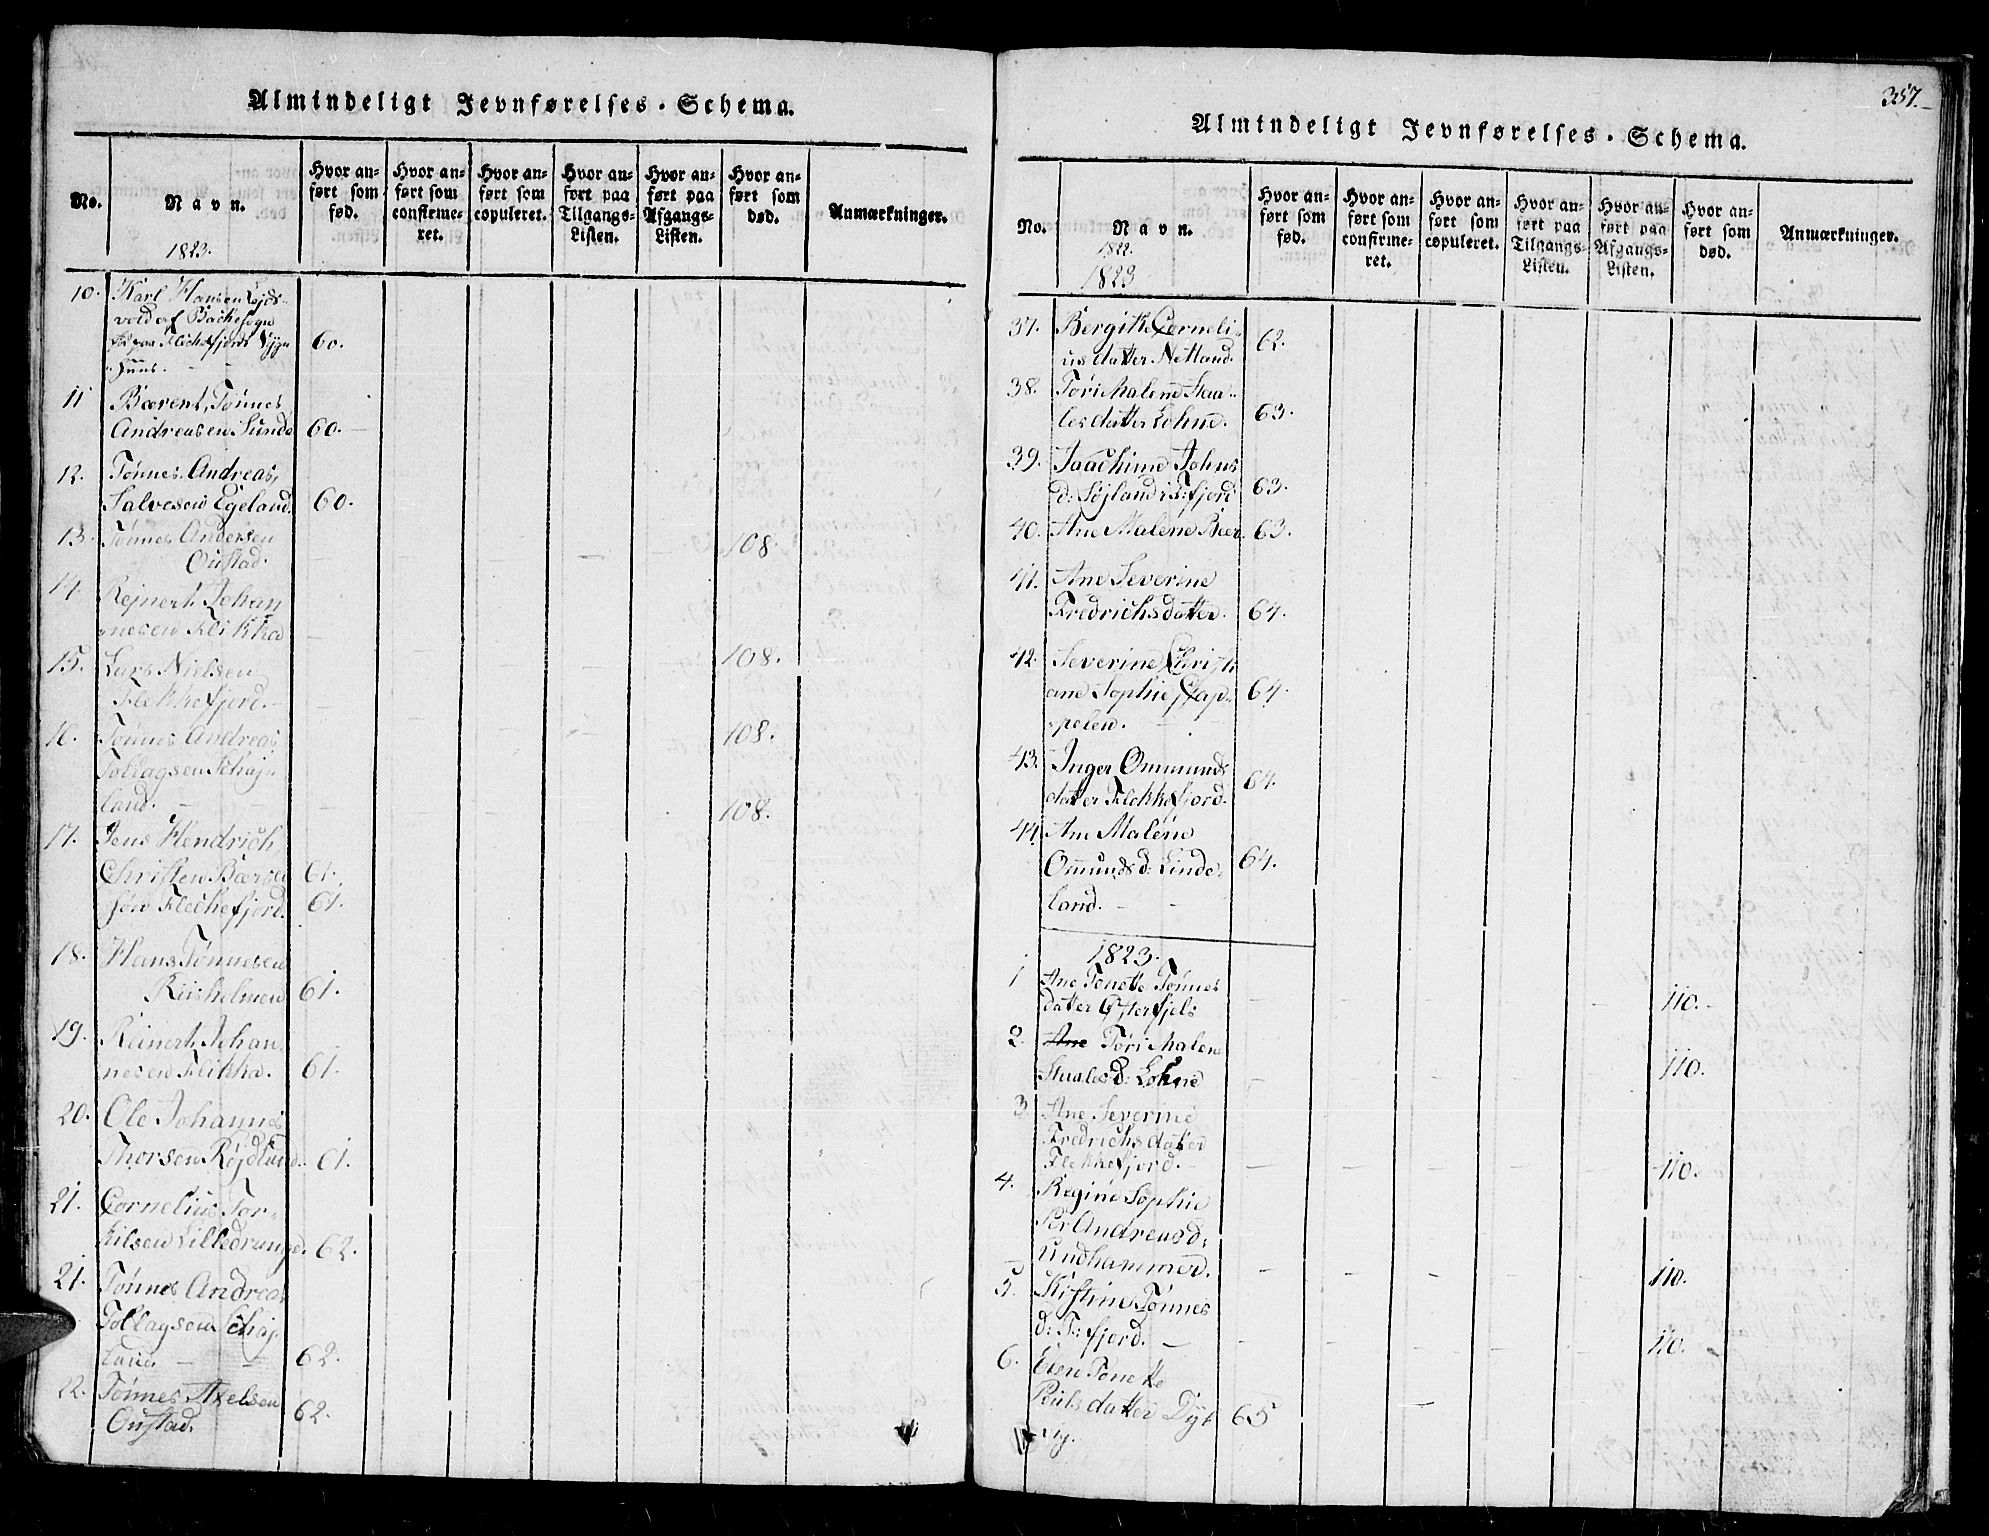 Almindeligt Jevnførelses-Schema.
No.
Navn.
1823.
Hvor anført som fød.
Hvor anført som confirmeret.
Hvor anført som copuleret.
Hvor anført paa Tilgangs-Listen.
Hvor anført paa Afgangs-Listen.
Hvor anført som død.
Anmærkninger.
10. Karl Hansen
vold af Backe sogn
paa Fleckefjords
Huus. 60.
11 Bærent, Tønnes
Andreasen Sunde 60.
12. Tønnes Andreas,
Salvesen Egeland. 60.
13. Tønnes Andersen
Oustad. 108.
14. Rejnert Johan
nesen Flikka
15. Lars Nielsen 108.
Flekkefjord.
16. Tønnes Andreas 108.
Tollagsen Schaj-
land. 108.
17. Jens Hendrich
Christen Bærn 61.
sen Fleckefjord. 61.
18. Hans Tønnesen
Riisholmen 61.
19. Reinert, Johan
nesen Flikka. 61.
20. Ole Johannes
Thorsen Røjdland. 61.
21. Cornelius Tor-
kilsen Lilledrange. 62.
21. Tønnes Andreas
Tollagsen Schaj
land. 62.
22. Tønnes Axelsen
Oustad. 62.
357.
Almindeligt Jevnførelses-Schema.
No.
Navn.
1822.
1823
Hvor anført som fød.
Hvor anført som confirmeret.
Hvor anført som copuleret.
Hvor anført paa Tilgangs-Listen.
Hvor anført paa Afgangs-Listen.
Hvor anført som død.
Anmærkninger.
37. Bergitte Corneli-
us datter Netland. 62.
38. Tøri Malene Staa-
lesdatter Lohne. 63.
39. Jaachime Johns
d: Søjland i F:fjord 63.
40. Ane Malene Beer 63.
41. Ane Severine
Fredrichsdatter. 64.
42. Severine Christi
ane Sophie Stap- 64.
pelen.
43. Inger Ommunds
datter Flekkefjord. 64.
44. Ane Malene
Omunds d: Linde- 64.
land.
1823.
1 Ane Tonette Tønnes
datter Østerfjels 110.
2. Ane Tøri Malene
Staales d: Lohne 110.
3. Ane Severine
Fredrichsdatter
Flekkefjord. 110.
4. Regine Sophie
Per Andreas d:
Undhammer. 110.
5. Kistine Tønnes
d: F:fjord. 110.
6. Elen Tonette
Poulsdatter Dyb 65
vig.